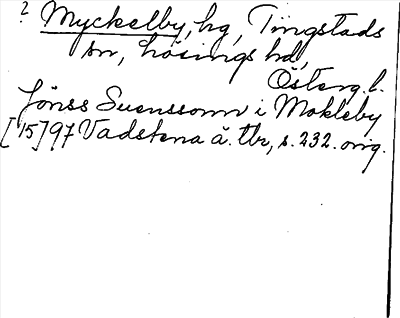 ? Myckelby, hg, Tingstads
sn, Lösings hd,
Österg. l.
Jönss Suenssonn i Mokleby
[15]97 Vadstena ä. tbr, s. 232. orig.